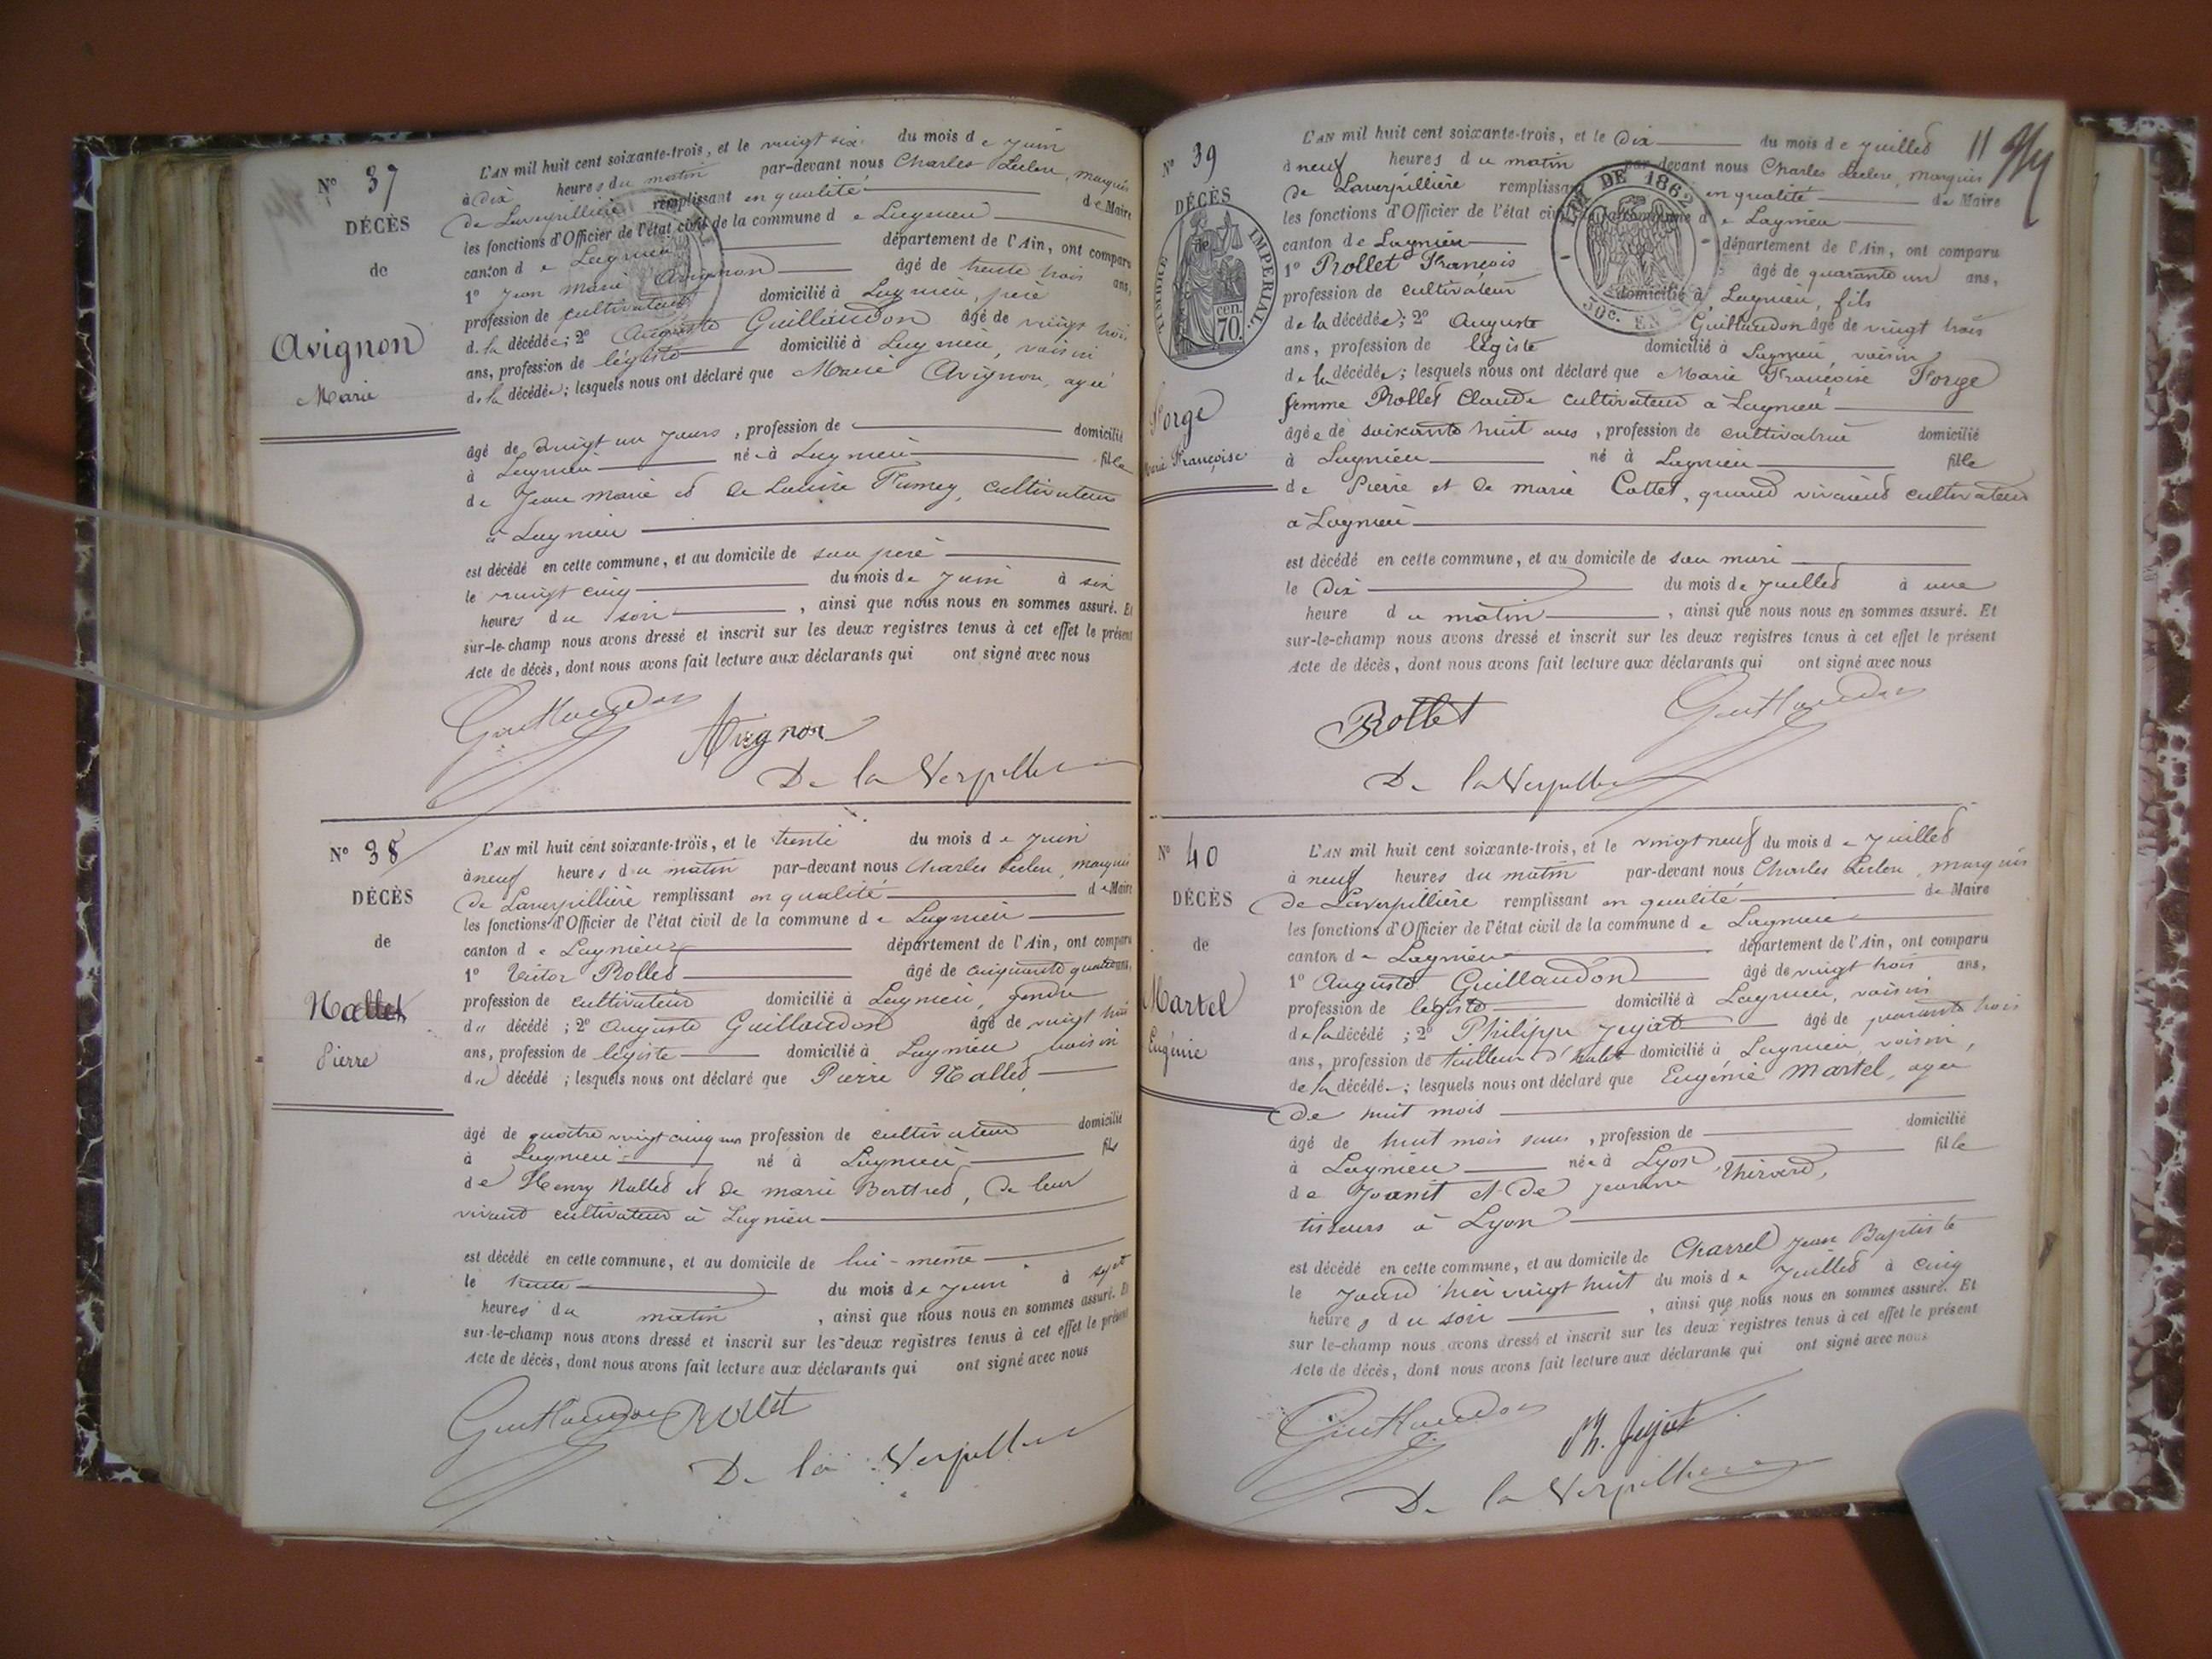 N° 37
DÉCÈS
de
Avignon
Marie
L'AN mil huit cent soixante-trois, et le vingt six du mois de Juin
à dix heures du matin par-devant nous Charles Leclerc, marquis
de Laverpillière remplissant en qualité de Maire
les fonctions d'Officier de l'état civil de la commune de Lagnieu
canton de Lagnieu département de l'Ain, ont comparu
1° Jean Marie Avignon âgé de trente trois ans,
profession de cultivateur domicilié à Lagnieu, père
de la décédée; 2° Auguste Guillaudon âgé de vingt trois
ans, profession de légiste domicilié à Lagnieu, voisin
de la décédée; lesquels nous ont déclaré que Marie Avignon, agée
âgé de vingt un jours, profession de domicilié
à Lagnieu née à Lagnieu fille
de Jean Marie et de Louise Fumey, cultivateurs
à Lagnieu
est décédé en cette commune, et au domicile de son père
le vingt cinq du mois de Juin à six
heures du soir, ainsi que nous nous en sommes assuré. Et
sur-le-champ nous avons dressé et inscrit sur les deux registres tenus à cet effet le présent
Acte de décès, dont nous avons fait lecture aux déclarants qui ont signé avec nous
Guillaudon Avignon
De la Verpilliere
N° 38
DÉCÈS
de
Nallet
Pierre
L'AN mil huit cent soixante-trois, et le trente du mois de Juin
à neuf heures du matin par-devant nous Charles Leclerc, marquis
de Laverpillière remplissant en qualité de Maire
les fonctions d'Officier de l'état civil de la commune de Lagnieu
canton de Lagnieu département de l'Ain, ont comparu
1° Victor Rollet âgé de cinquante quatre ans,
profession de cultivateur domicilié à Lagnieu, gendre
du décédé; 2° Auguste Guillaudon âgé de vingt trois
ans, profession de légiste domicilié à Lagnieu voisin
du décédé; lesquels nous ont déclaré que Pierre Nallet
âgé de quatre vingt cinq ans profession de cultivateur domicilié
à Lagnieu né à Lagnieu fils
de Henry Nallet et de marie Berttret, de leur
vivant cultivateurs à Lagnieu
est décédé en cette commune, et au domicile de lui-même
le trente du mois de Juin à sept
heures du matin, ainsi que nous nous en sommes assuré. Et
sur-le-champ nous avons dressé et inscrit sur les deux registres tenus à cet effet le présent
Acte de décès, dont nous avons fait lecture aux déclarants qui ont signé avec nous
Guillaudon Rollet
De la Verpilliere
11
N° 39
DÉCÈS
de
TIMBRE IMPERIAL
70 cen.
Forge
Marie Françoise
L'AN mil huit cent soixante-trois, et le dix du mois de Juillet
à neuf heures du matin par-devant nous Charles Leclerc, marquis
de Laverpillière remplissant en qualité de Maire
les fonctions d'Officier de l'état civil de la commune de Lagnieu
LOI DE 1862
50c. EN SUS
canton de Lagnieu département de l'Ain, ont comparu
1° Rollet François âgé de quarante un ans,
profession de cultivateur domicilié à Lagnieu, fils
de la décédée; 2° Auguste Guillaudon âgé de vingt trois
ans, profession de légiste domicilié à Lagnieu, voisin
de la décédée; lesquels nous ont déclaré que Marie Françoise Forge
femme Rollet Claude cultivateur a Lagnieu
âgée de soixante huit ans, profession de cultivatrice domicilié
à Lagnieu né à Lagnieu fille
de Pierre et de marie Cottet, quand vivaient cultivateurs
a Lagnieu
est décédé en cette commune, et au domicile de son mari
le dix du mois de Juillet à une
heure du matin, ainsi que nous nous en sommes assuré. Et
sur-le-champ nous avons dressé et inscrit sur les deux registres tenus à cet effet le présent
Acte de décès, dont nous avons fait lecture aux déclarants qui ont signé avec nous
Rollet Guillaudon
De la Verpilliere
N° 40
DÉCÈS
de
Martel
Eugénie
L'AN mil huit cent soixante-trois, et le vingt neuf du mois de Juillet
à neuf heures du matin par-devant nous Charles Leclerc, marquis
de Laverpillière remplissant en qualité de Maire
les fonctions d'Officier de l'état civil de la commune de Lagnieu
canton de Lagnieu département de l'Ain, ont comparu
1° Auguste Guillaudon âgé de vingt trois ans,
profession de légiste domicilié à Lagnieu, voisin
de la décédé; 2° Philippe Jujat âgé de quarante trois
ans, profession de tailleur d'habits domicilié à Lagnieu, voisin,
de la décédée; lesquels nous ont déclaré que Eugénie Martel, agée
de huit mois
âgé de huit mois, profession de domicilié
à Lagnieu née à Lyon fille
de Joanit et de Jeanne
tisseurs à Lyon
est décédé en cette commune, et au domicile de Charrel Jean Baptiste
le jour d'hier vingt huit du mois de Juillet à cinq
heures du soir, ainsi que nous nous en sommes assuré. Et
sur le-champ nous avons dressé et inscrit sur les deux registres tenus à cet effet le présent
Acte de décès, dont nous avons fait lecture aux déclarants qui ont signé avec nous
Guillaudon Ph. Jujat
De la Verpilliere